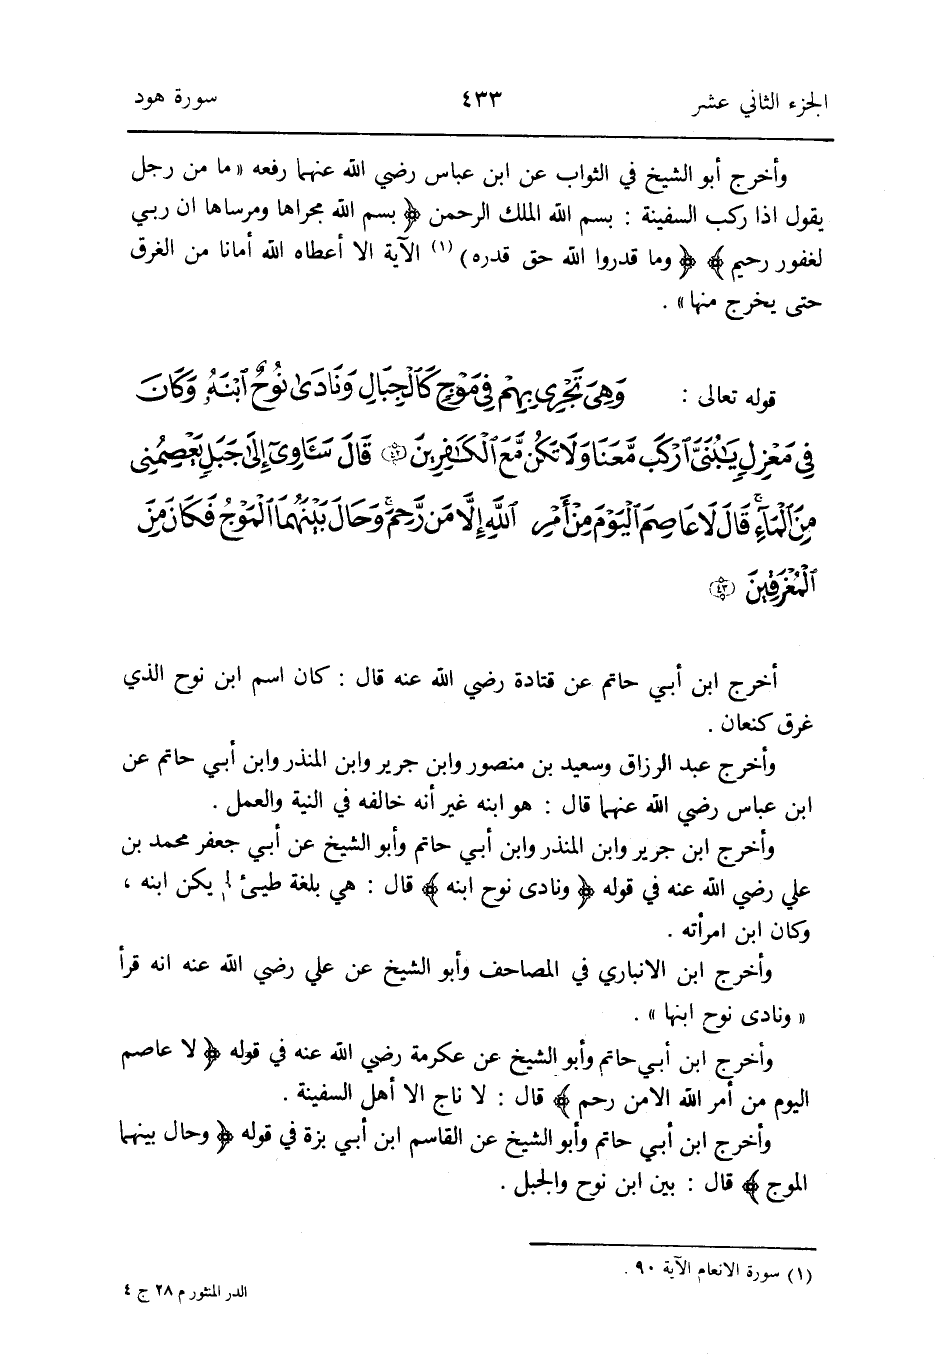 الجزء الثاني عشر ٤٣٣ سورة هود
وأخرج أبو الشيخ في الثواب عن ابن عباس رضي الله عنهما رفعه « ما من رجل
يقول اذا ركب السفينة : بسم الله الملك الرحمن ﴿ بسم الله مجراها ومرساها ان ربي
لغفور رحيم ﴾ ﴿ وما قدروا الله حق قدره) (١) الآية الا أعطاه الله أمانا من الغرق
حتى يخرج منها» .
قوله تعالى : وَهِيَ تَجْرِي بِهِمْ فِي مَوْجٍ كَٱلْجِبَالِ وَنَادَىٰ نُوحٌ ٱبْنَهُۥ وَكَانَ
فِي مَعْزِلٍ يَٰبُنَيَّ ٱرْكَب مَّعَنَا وَلَا تَكُن مَّعَ ٱلْكَٰفِرِينَ ﴿٤٢﴾ قَالَ سَـَٔاوِيٓ إِلَىٰ جَبَلٍ يَعْصِمُنِي
مِنَ ٱلْمَآءِ ۚ قَالَ لَا عَاصِمَ ٱلْيَوْمَ مِنْ أَمْرِ ٱللَّهِ إِلَّا مَن رَّحِمَ ۚ وَحَالَ بَيْنَهُمَا ٱلْمَوْجُ فَكَانَ مِنَ
ٱلْمُغْرَقِينَ ﴿٤٣﴾
أخرج ابن أبي حاتم عن قتادة رضي الله عنه قال : كان اسم ابن نوح الذي
غرق كنعان .
وأخرج عبد الرزاق وسعيد بن منصور وابن جرير وابن المنذر وابن أبي حاتم عن
ابن عباس رضي الله عنهما قال : هو ابنه غير أنه خالفه في النية والعمل .
وأخرج ابن جرير وابن المنذر وابن أبي حاتم وأبو الشيخ عن أبي جعفر محمد بن
علي رضي الله عنه في قوله ﴿ ونادى نوح ابنه ﴾ قال : هي بلغة طيئ لم يكن ابنه ،
وكان ابن امرأته .
وأخرج ابن الانباري في المصاحف وأبو الشيخ عن علي رضي الله عنه انه قرأ
« ونادى نوح ابنها » .
وأخرج ابن أبي حاتم وأبو الشيخ عن عكرمة رضي الله عنه في قوله ﴿ لا عاصم
اليوم من أمر الله الامن رحم ﴾ قال : لا ناج الا أهل السفينة .
وأخرج ابن أبي حاتم وأبو الشيخ عن القاسم ابن أبي بزة في قوله ﴿ وحال بينهما
الموج ﴾ قال : بين ابن نوح والجبل .
(١) سورة الانعام الآية ٩٠ .
الدر المنثور م ٢٨ ج ٤